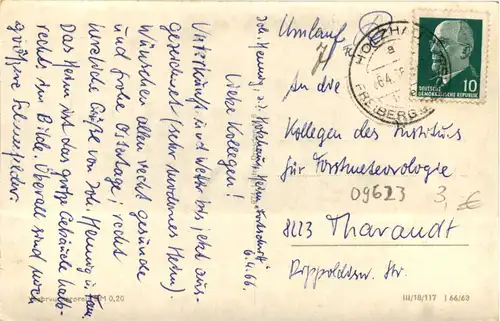 Joh. Hennig, z. Z. Holzhau, Heim "Fortschritt"
6.4.66.
Liebe Kollegen!
Unterkunft und Wetter bis jetzt aus-
gezeichnet (sehr modernes Heim).
Wünschen allen recht gesunde
und frohe Ostertage; recht
herzliche Grüße von Joh. Hennig u. Frau.
Das Heim ist das große Gebäude halb-
rechts im Bilde. Überall sind noch
größere Schneefelder.
Umlauf
HOLZHAU
FREIBERG
DEUTSCHE
DEMOKRATISCHE REPUBLIK
10
An die
Kollegen des Instituts
für Forstmeteorologie
09623 3,- €
8223 Tharandt
Rippoldsw. Str.
M 0,20
III/18/117 1 66/63